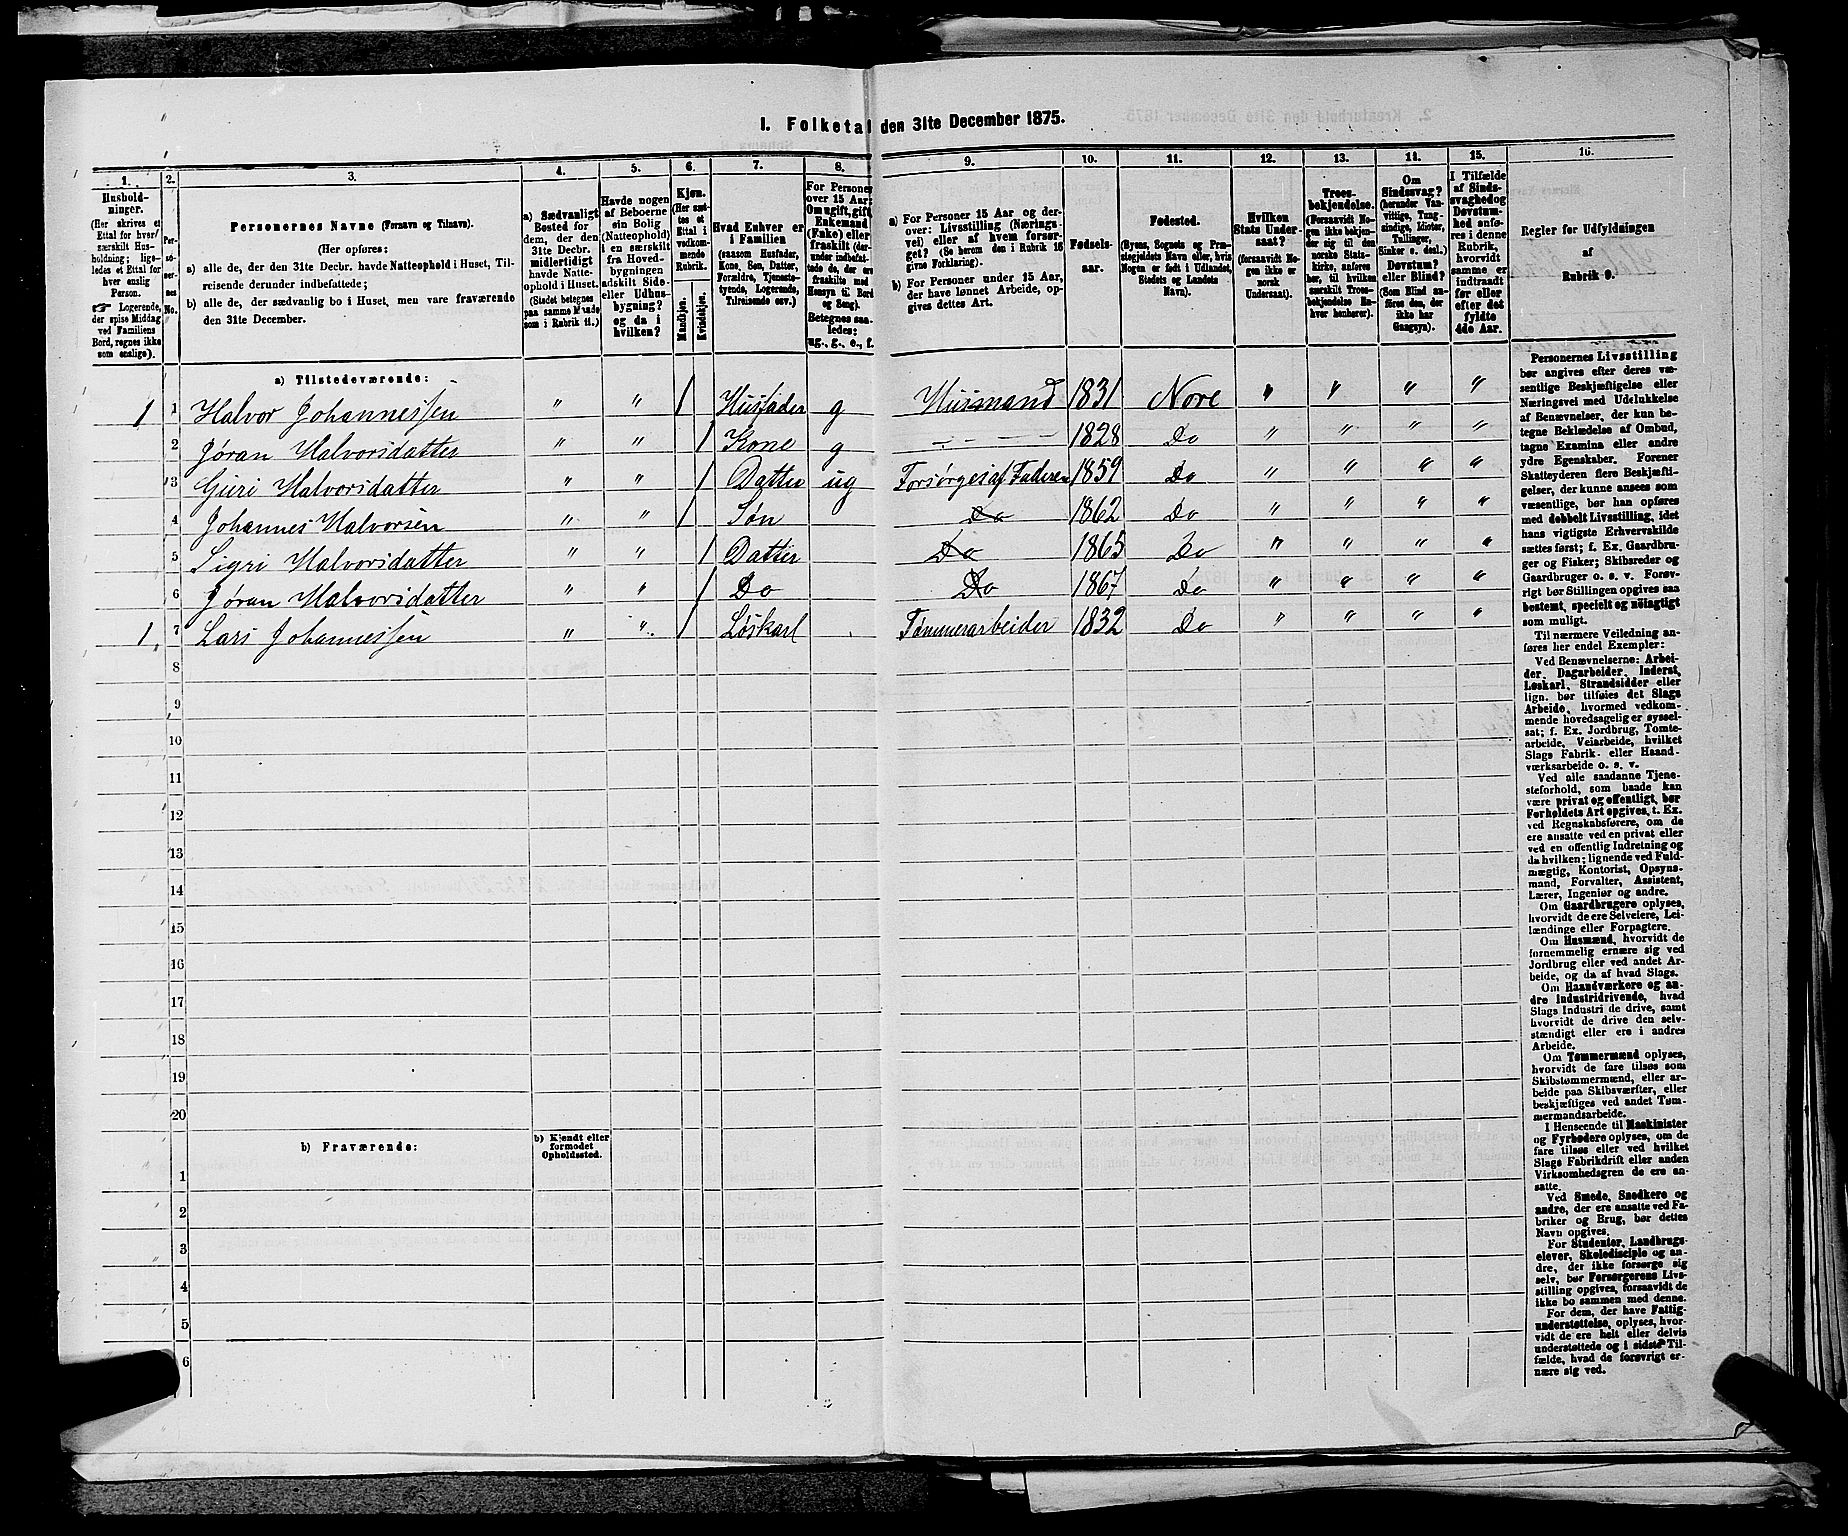 I. Folketal den 31te December 1875.
1. 2. 3. 4. 5. 6. 7. 8. 9. 10. 11. 12. 13. 14. 15. 16.
Husholdninger.
(Her skrives et
Ettal for hver
særskilt Husholdning;
ligeledes
et Ettal for
hver enslig
Person.
☞ Logerende,
der spise Middag
ved Familiens
Bord, regnes ikke
som enslige).
Personernes No.
Personernes Navne (Fornavn og Tilnavn).
(Her opføres:
a) alle de, der den 31te Decbr. havde Natteophold i Huset, Tilreisende derunder indbefattede;
b) alle de, der sædvanlig bo i Huset, men vare fraværende
den 31te December.
a) Sædvanligt
Bosted for
dem, der den
31te Decbr.
midlertidigt
havde Natteophold i Huset.
(Stedet betegnes
paa samme Maade
som i Rubrik 11.)
Havde nogen
af Beboerne
sin Bolig
(Natteophold)
i en særskilt
fra Hovedbygningen
adskilt Sideeller Udhusbygning?
og da i
hvilken?
Kjøn.
(Her sættes et
Ettal i
vedkommende
Rubrik.
Mandkjøn.
Kvindekjøn.
Hvad Enhver er
i Familien
(saasom Husfader,
Kone, Søn, Datter,
Forældre, Tjenestetyende, Logerende,
Tilreisende osv.)
For Personer
over 15 Aar:
Om ugift, gift,
Enkemand
(Enke) eller
fraskilt (derunder indbefattede de, der ere
fraskilte med
Hensyn til Bord
og Seng).
Betegnes saaledes:
ug., g., e., f.
a) For Personer 15 Aar og derover: Livsstilling (Næringsvei) eller af hvem forsørget? (Se herom den i Rubrik 16
givne Forklaring).
b) For Personer under 15 Aar,
der have lønnet Arbeide, opgives dettes Art.
Fødselsaar.
Fødested.
(Byens, Sognets og Præstegjeldets Navn eller, hvis
Nogen er født i Udlandet,
Stedets og Landets
Navn).
Hvilken
Stats Undersaat?
(forsaavidt Nogen ikke er
norsk
Undersaat).
Troesbekjendelse.
(Forsaavidt Nogen ikke bekjender sig til den
norske Statskirke, anføres
her, til hvilken
særskilt Troesbekjendelse Enhver henhører).
Om
Sindssvag?
(herunder Vanvittige, Tungsindige, Idioter,
Tullinger,
Sinker o. desl.)
Døvstum?
eller Blind?
(Som Blind anføres den, der
ikke har
Gangsyn).
I Tilfælde
af Sindssvaghed og
Døvstumhed anføres i denne
Rubrik,
hvorvidt
samme er
indtraadt
før eller
efter det
fyldte
4de Aar.
Regler for Udfyldningen
af
Rubrik 9.
a) Tilstedeværende:
1 1 Halvor Johannessen " " 1 Husfader g Husmand 1831 Nore " " " "
2 Jøran Halvorsdatter " " 1 Kone g – – – – 1828 Do " " " "
3 Guri Halvorsdatter " " 1 Datter ug Forsørges af Faderen 1859 Do " " " "
4 Johannes Halvorsen " " 1 Søn Do 1862 Do " " " "
5 Sigri Halvorsdatter " " 1 Datter Do 1865 Do " " " "
6 Jøran Halvorsdatter " " 1 Do Do 1867 Do " " " "
1 7 Lars Johannessen " " 1 Løskarl Tømmerarbeider 1832 Do " " " "
8
9
10
11
12
13
14
15
16
17
18
19
20
b) Fraværende:
b) Kjendt eller
formodet
Opholdssted.
1
2
3
4
5
6
Personernes Livsstilling
bør angives efter deres væsentlige Beskjæftigelse eller
Næringsvei med Udelukkelse
af Benævnelser, der kun betegne Beklædelse af Ombud,
tagne Examina eller andre
ydre Egenskaber. Forener
Skatteyderen flere Beskjæftigelser, der kunne ansees som
væsentlige, bør han opføres
med dobbelt Livsstilling, idet
hans vigtigste Erhvervskilde
sættes først; f. Ex. Gaardbruger og Fisker; Skibsreder og
Gaardbruger o. s. v. Forøvrigt bør Stillingen opgives saa
bestemt, specielt og nöiagtigt
som muligt.
Til nærmere Veiledning anføres her endel Exempler:
Ved Benævnelserne: Arbeider, Dagarbeider, Inderst,
Løskarl, Strandsidder eller
lign. bør tilføies det Slags
Arbeide, hvormed vedkommende hovedsagelig er sysselsat; f. Ex. Jordbrug, Tomtearbeide, Veiarbeide, hvilket
Slags Fabrik- eller Haandværksarbeide o. s. v.
Ved alle saadanne Tjenesteforhold, som baade kan
være privat og offentligt, bør
Forholdets Art opgives, t. Ex.
ved Regnskabsførere, om de
ere ansatte ved en privat eller
ved en offentlig Indretning og
da hvilken; lignende ved Fuldmægtig, Kontorist, Opsynsmand, Forvalter, Assistent,
Lærer, Ingeniør og andre.
Om Gaardbrugere oplyses,
hvorvidt de ere Selveiere, Leilændinge eller Forpagtere.
Om Husmænd, hvorvidt de
fornemmelig ernære sig ved
Jordbrug eller ved andet Arbeide, og da af hvad Slags.
Om Haandværkere og andre Industridrivende, hvad
Slags Industri de drive, samt
hvorvidt de drive den selvstændigt eller ere i andres
Arbeide.
Om Tømmermænd oplyses,
hvorvidt de fare tilsøs som
Skibstømmermænd, eller arbeide paa Skibsværfter, eller
beskjæftiges ved andet Tømmermandsarbeide.
I Henseende til Maskinister
og Fyrbødere oplyses, om de
fare tilsøs eller ved hvilket
Slags Fabrikdrift eller anden
Virksomhedsgren de ere ansatte.
Ved Smede, Snedkere og
andre, der ere ansatte ved Fabriker og Brug, bør dettes
Navn opgives.
For Studenter, Landbrugselever, Skoledisciple og andre, der ikke forsørge sig
selv, bør Forsørgerens Livsstilling opgives, forsaavidt de
ikke bo sammen med denne.
For dem, der have Fattigunderstøttelse, oplyses, hvorvidt de ere helt eller delvis
understøttede og i sidste Tilfælde, hvad de forøvrigt ernære sig ved.